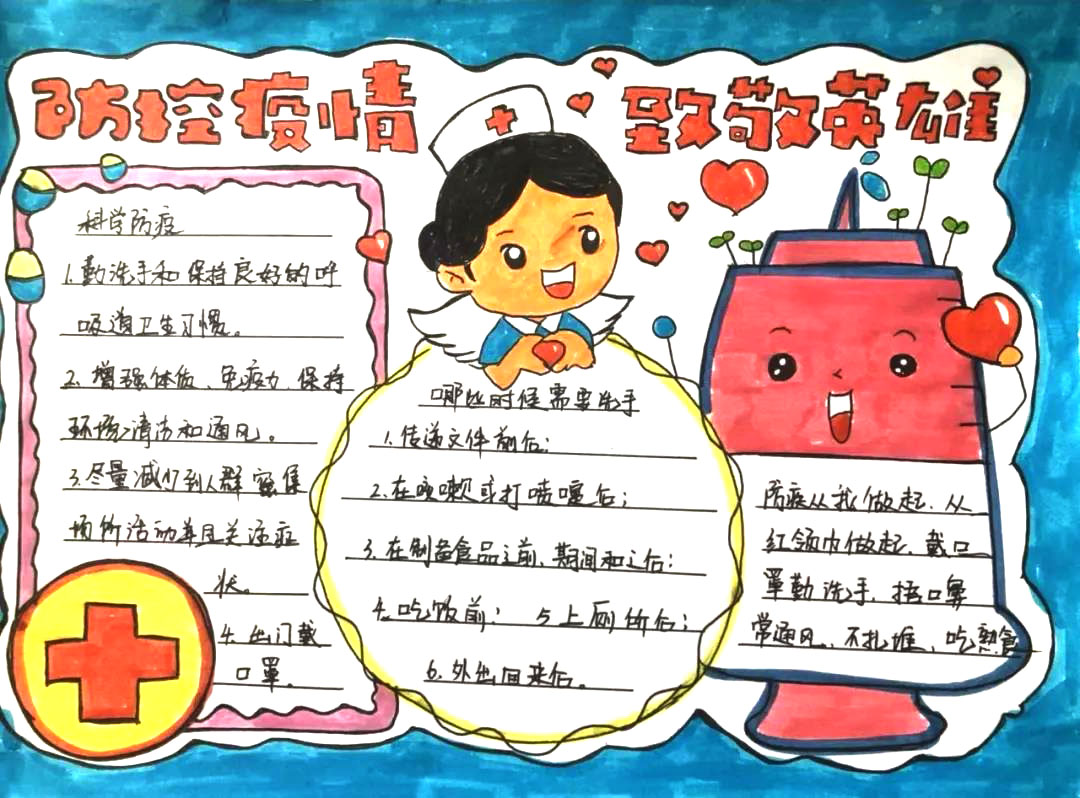 防控疫情 致敬英雄
科学防疫
1.勤洗手和保持良好的呼
吸道卫生习惯。
2.增强体质、免疫力、保持
环境清洁和通风。
3.尽量减少到人群密集
场所活动并且关注症
状。
4.出门戴
口罩。
哪些时候需要洗手
1.传递文件前后;
2.在咳嗽或打喷嚏后;
3.在制备食品之前、期间和之后;
4.吃饭前; 5上厕所后;
6.外出回来后。
防疫从我做起、从
红领巾做起、戴口
罩勤洗手,捂口鼻
常通风、不扎堆、吃熟食